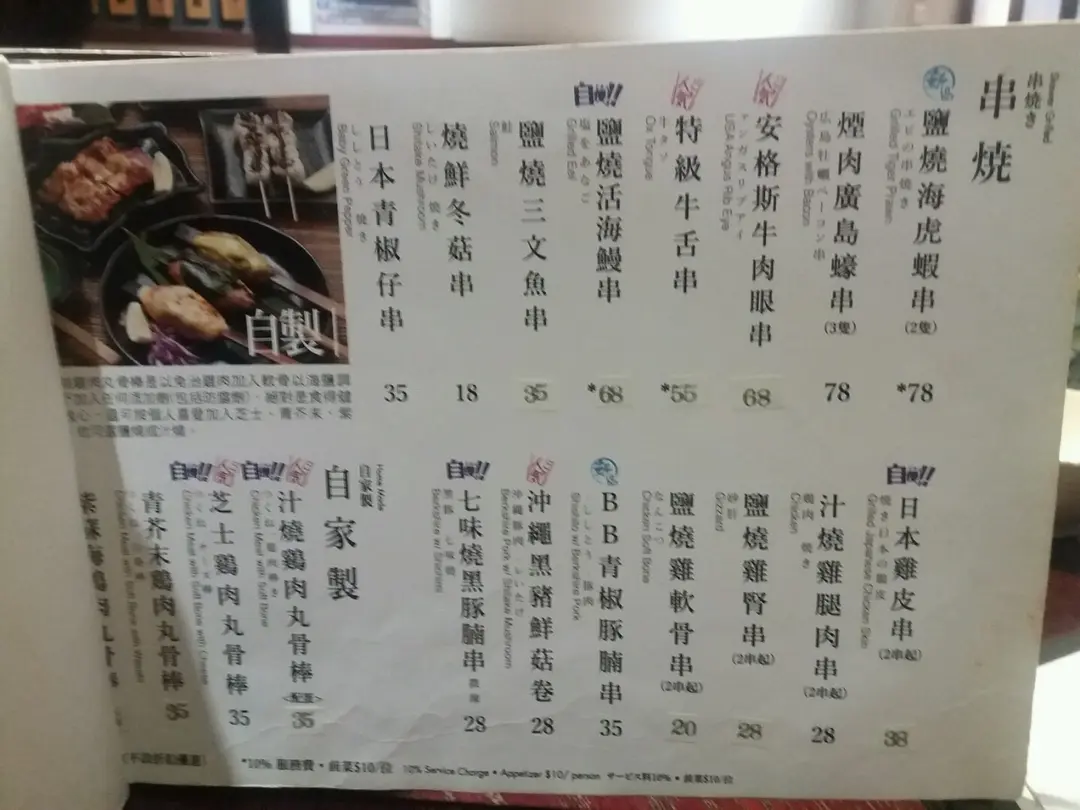 串燒
串焼き
Skewer Grilled
鹽燒海虎蝦串(2隻)
エビの串焼き
Grilled Tiger Prawn
*78
煙肉廣島蠔串(3隻)
広島牡蠣ベーコン串
Oysters with Bacon
78
人氣
安格斯牛肉眼串
アンガスリブアイ
USA Angus Rib Eye
68
人氣
特級牛舌串
牛タン
Ox Tongue
*55
自慢!!
鹽燒活海鰻串
塩をあなご
Grilled Eel
*68
鹽燒三文魚串
鮭
Salmon
35
燒鮮冬菇串
しいたけ 焼き
Shiitake Mushroom
18
日本青椒仔串
ししとう 焼き
Baby Green Pepper
35
自製
自慢!!
日本雞皮串(2串起)
焼き日本の鶏皮
Grilled Japanese Chicken Skin
38
汁燒雞腿肉串(2串起)
鶏肉 焼き
Chicken
28
鹽燒雞腎串(2串起)
砂肝
Gizzard
28
鹽燒雞軟骨串(2串起)
なんこつ
Chicken Soft Bone
20
BB青椒豚腩串
ししとう 豚肉
Shishito w/ Berkshire Pork
35
人氣
沖繩黑豬鮮菇卷
沖縄豚肉 しいたけ
Berkshire Pork w/ Shiitake Mushroom
28
自慢!!
七味燒黑豚腩串
黒豚 七味焼
Berkshire w/ Shichimi
28
自家製
自家製
Home Made
自慢!! 人氣
汁燒雞肉丸骨棒
つくね 鶏肉棒き
Chicken Meat with Soft Bone
35
自慢!! 人氣
芝士雞肉丸骨棒
つくね チーズ棒
Chicken Meat with Soft Bone with Cheese
35
青芥末雞肉丸骨棒
Chicken Meat with Soft Bone with Wasabi
35
*10% 服務費・前菜$10/位 10% Service Charge • Appetizer $10/ person サービス料10%・前菜$10/位